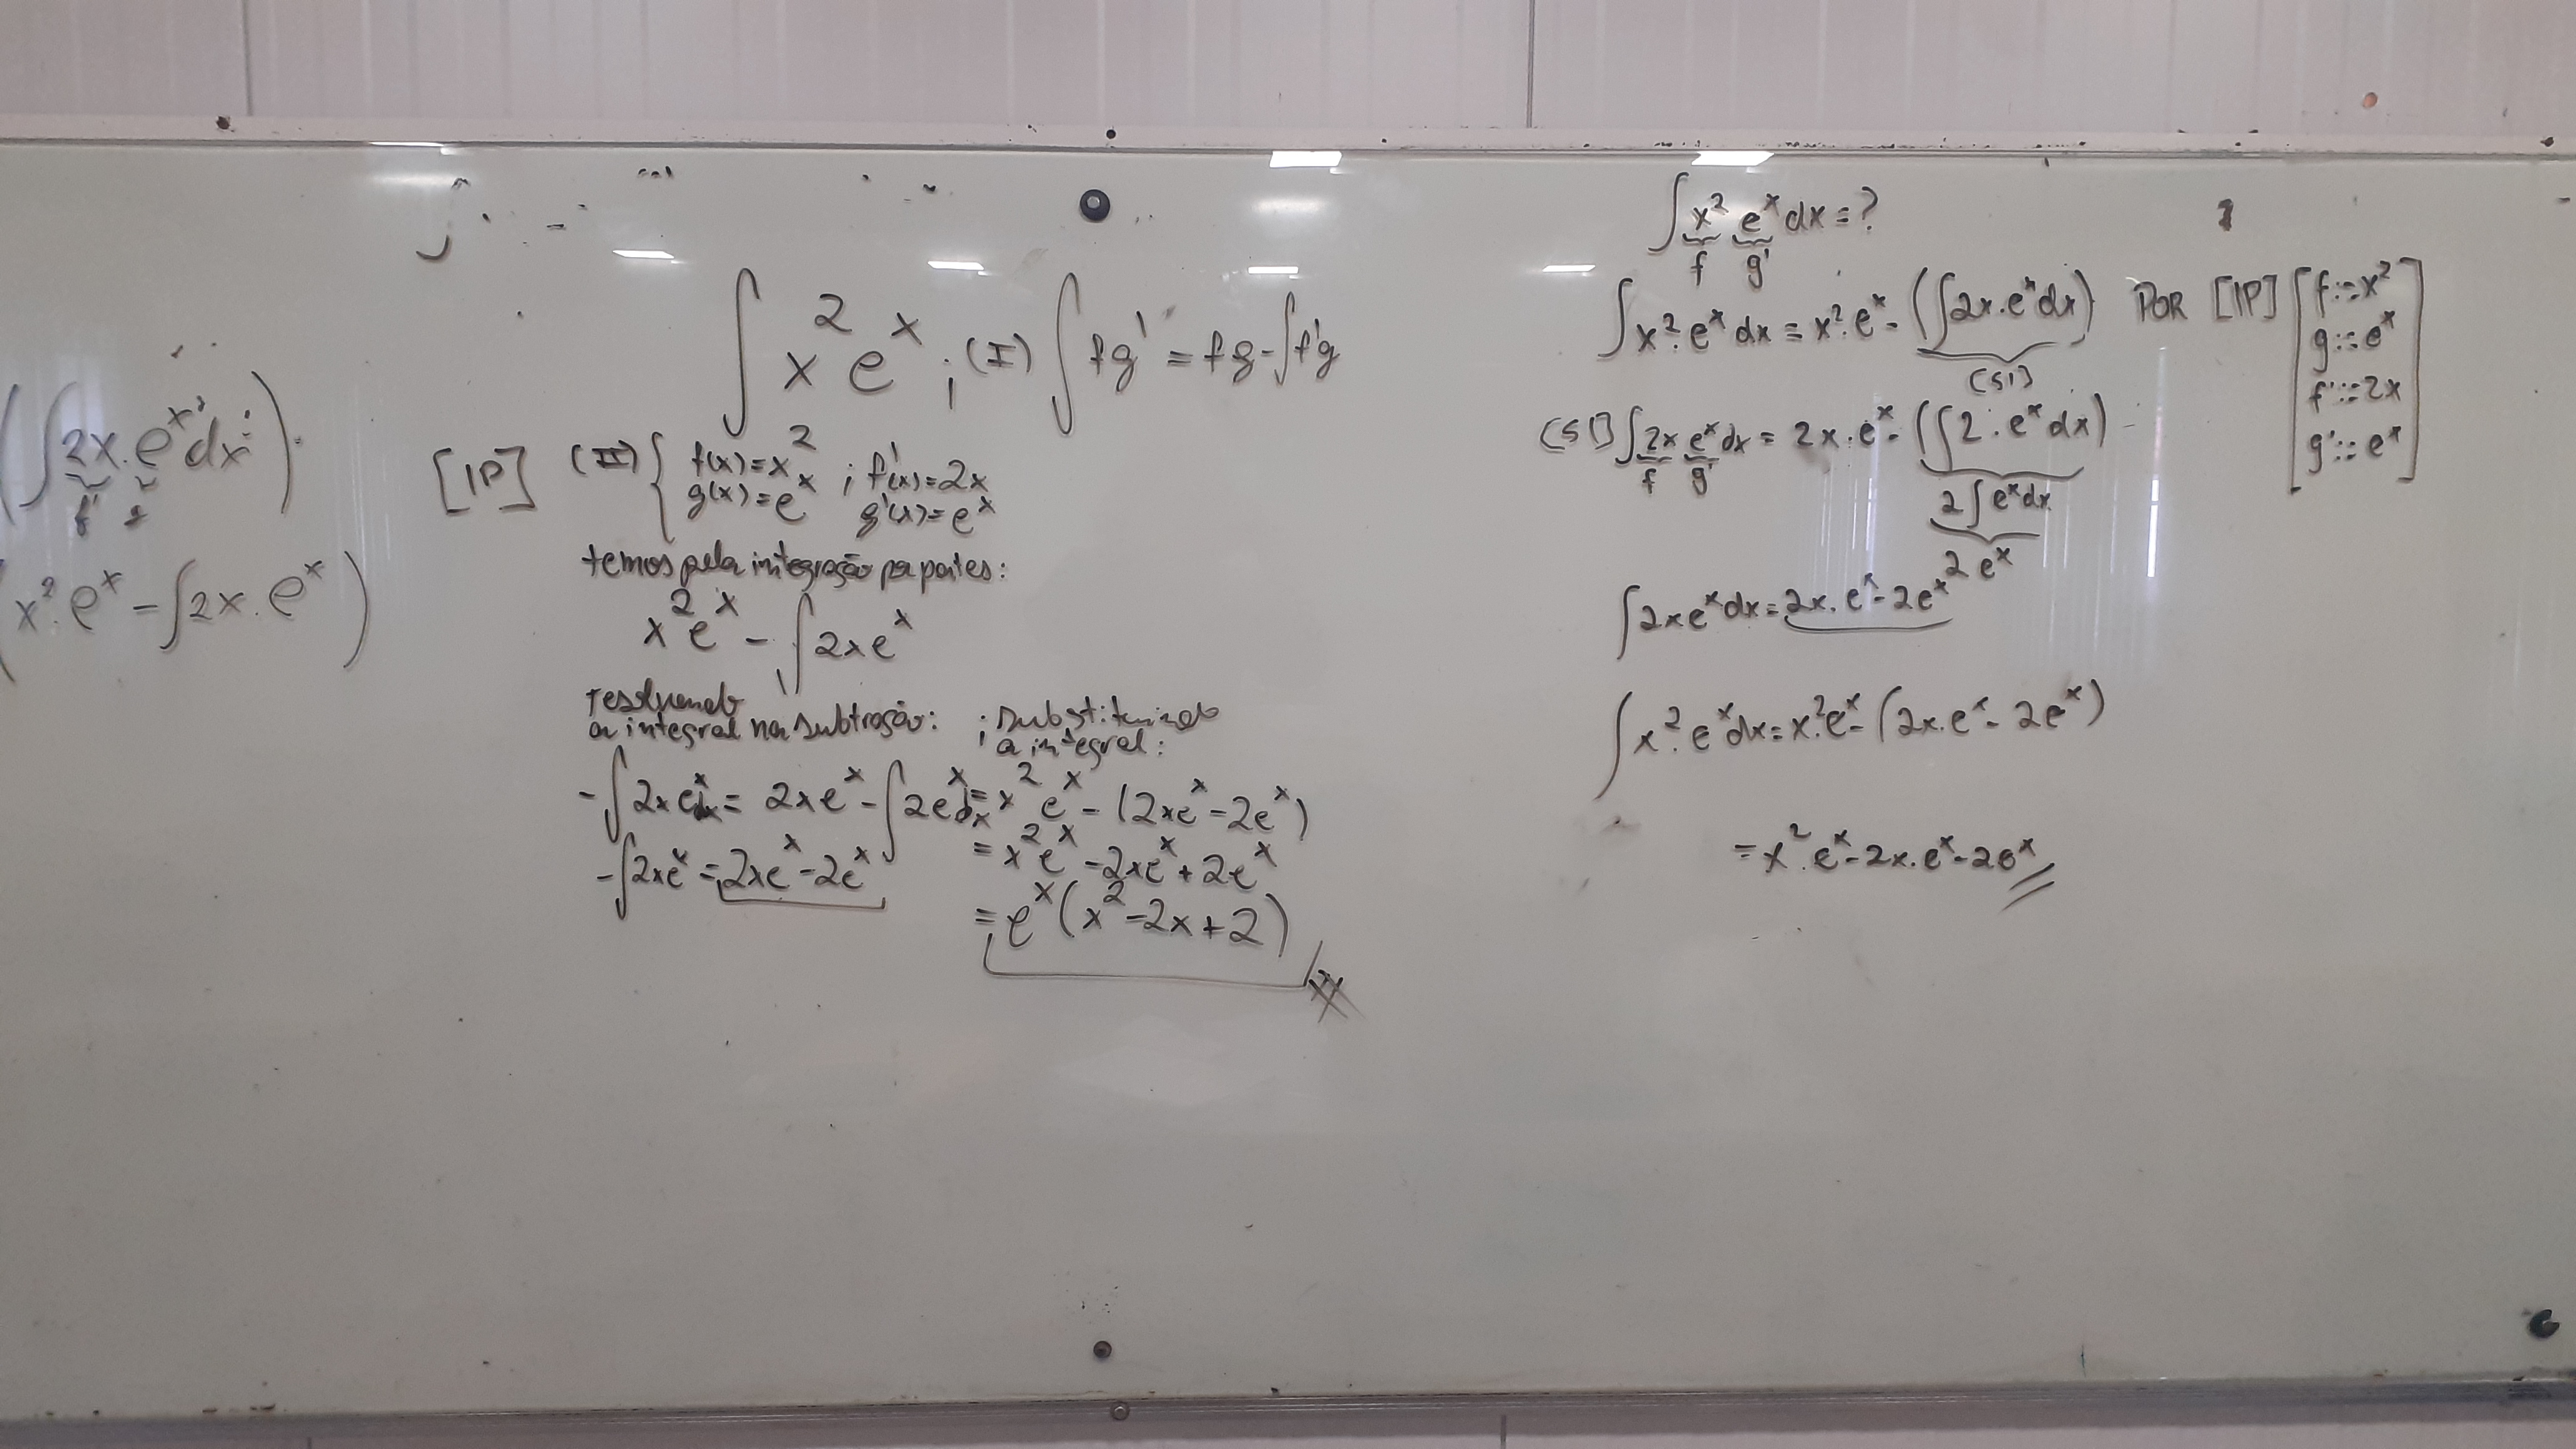 (∫2x.eˣdx)
f' g
(x².eˣ - ∫2x.eˣ)
∫x²eˣ ; (I) ∫fg' = fg - ∫f'g
[IP] (II) { f(x)=x² ; f'(x)=2x
g(x)=eˣ g'(x)=eˣ
temos pela integração por partes:
x²eˣ - ∫2xeˣ
resolvendo
a integral na subtração:
-∫2xeˣdx = 2xeˣ - ∫2eˣdx
-∫2xeˣ = 2xeˣ - 2eˣ
; substituindo
a integral:
= x²eˣ - (2xeˣ - 2eˣ)
= x²eˣ - 2xeˣ + 2eˣ
= eˣ(x² - 2x + 2)
∫x² eˣ dx = ?
f g'
∫x².eˣ dx = x².eˣ - (∫2x.eˣdx) POR [IP] [f:=x²
g:=eˣ
f':=2x
g':=eˣ]
(S1)
(S1) ∫2x eˣdx = 2x.eˣ - (∫2.eˣdx)
f g'
2∫eˣdx
2eˣ
∫2xeˣdx = 2x.eˣ - 2eˣ
∫x².eˣdx = x².eˣ - (2x.eˣ - 2eˣ)
= x².eˣ - 2x.eˣ - 2eˣ //